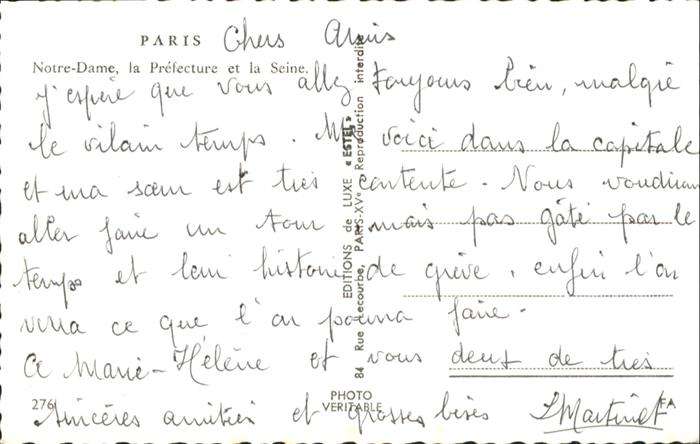 PARIS
Chers Amis
Notre-Dame, la Préfecture et la Seine.
J'espère que vous allez toujours bien, malgré
le vilain temps. Me voici dans la capitale
et ma sœur est très contente. Nous voudrions
aller faire un tour mais pas gâté par le
temps et leur histoire de grève, enfin l'on
verra ce que l'on pourra faire.
A Marie-Hélène et vous deux de très
sincères amitiés et grosses bises
LMartinet
276
PHOTO
VERITABLE
FA
EDITIONS de LUXE « ESTEL »
84 Rue Lecourbe, PARIS-XVe - Reproduction interdite